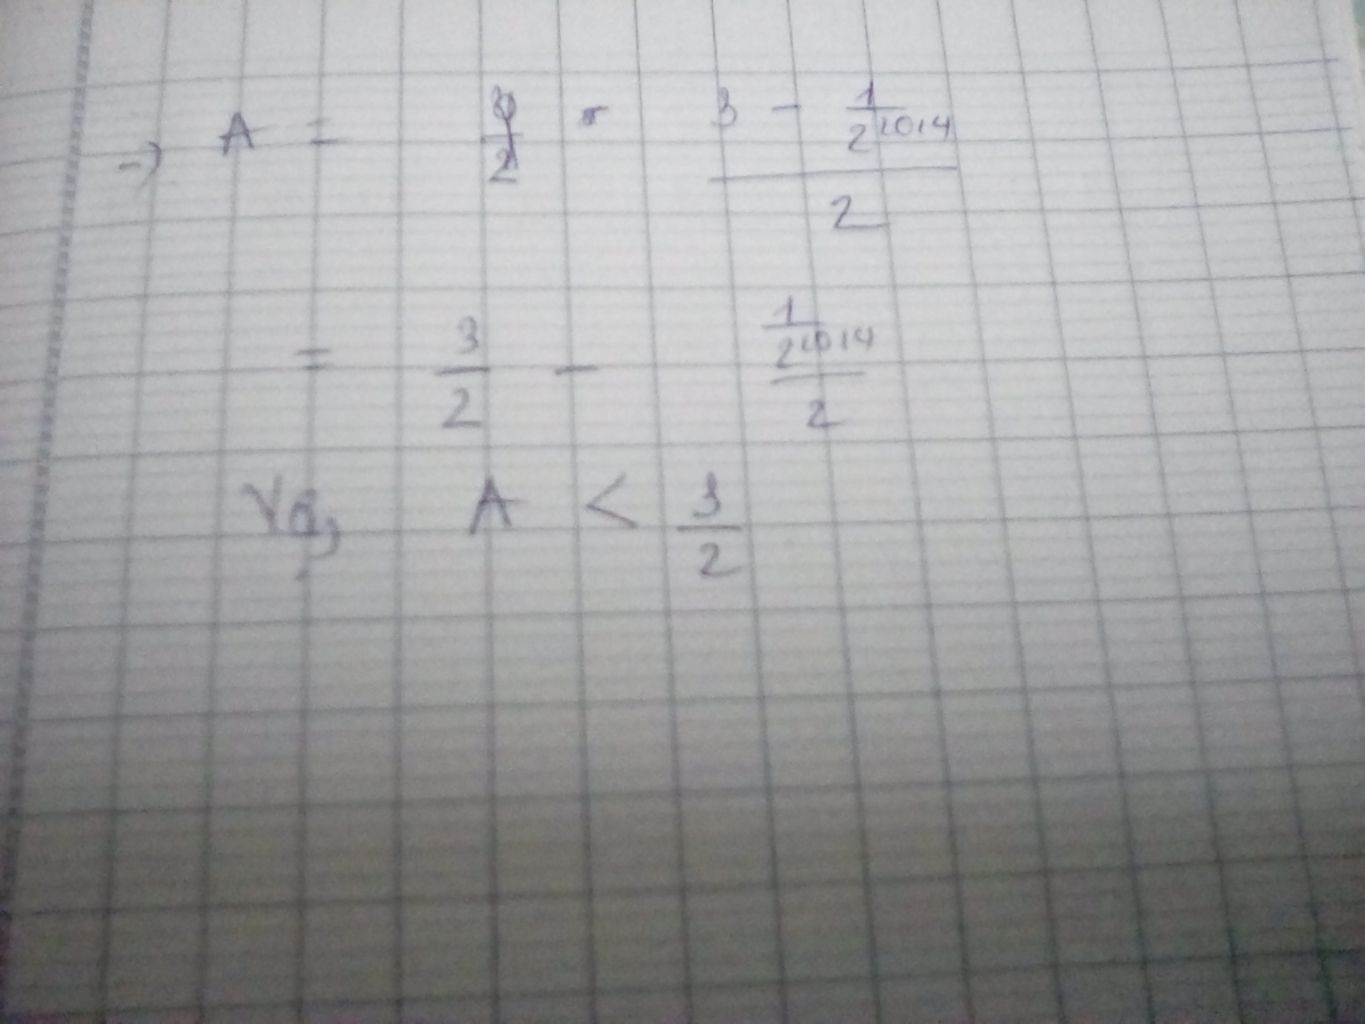 → A = (3 - 1/2^2014)/2
= 3/2 - (1/2^2014)/2
Vậy A < 3/2